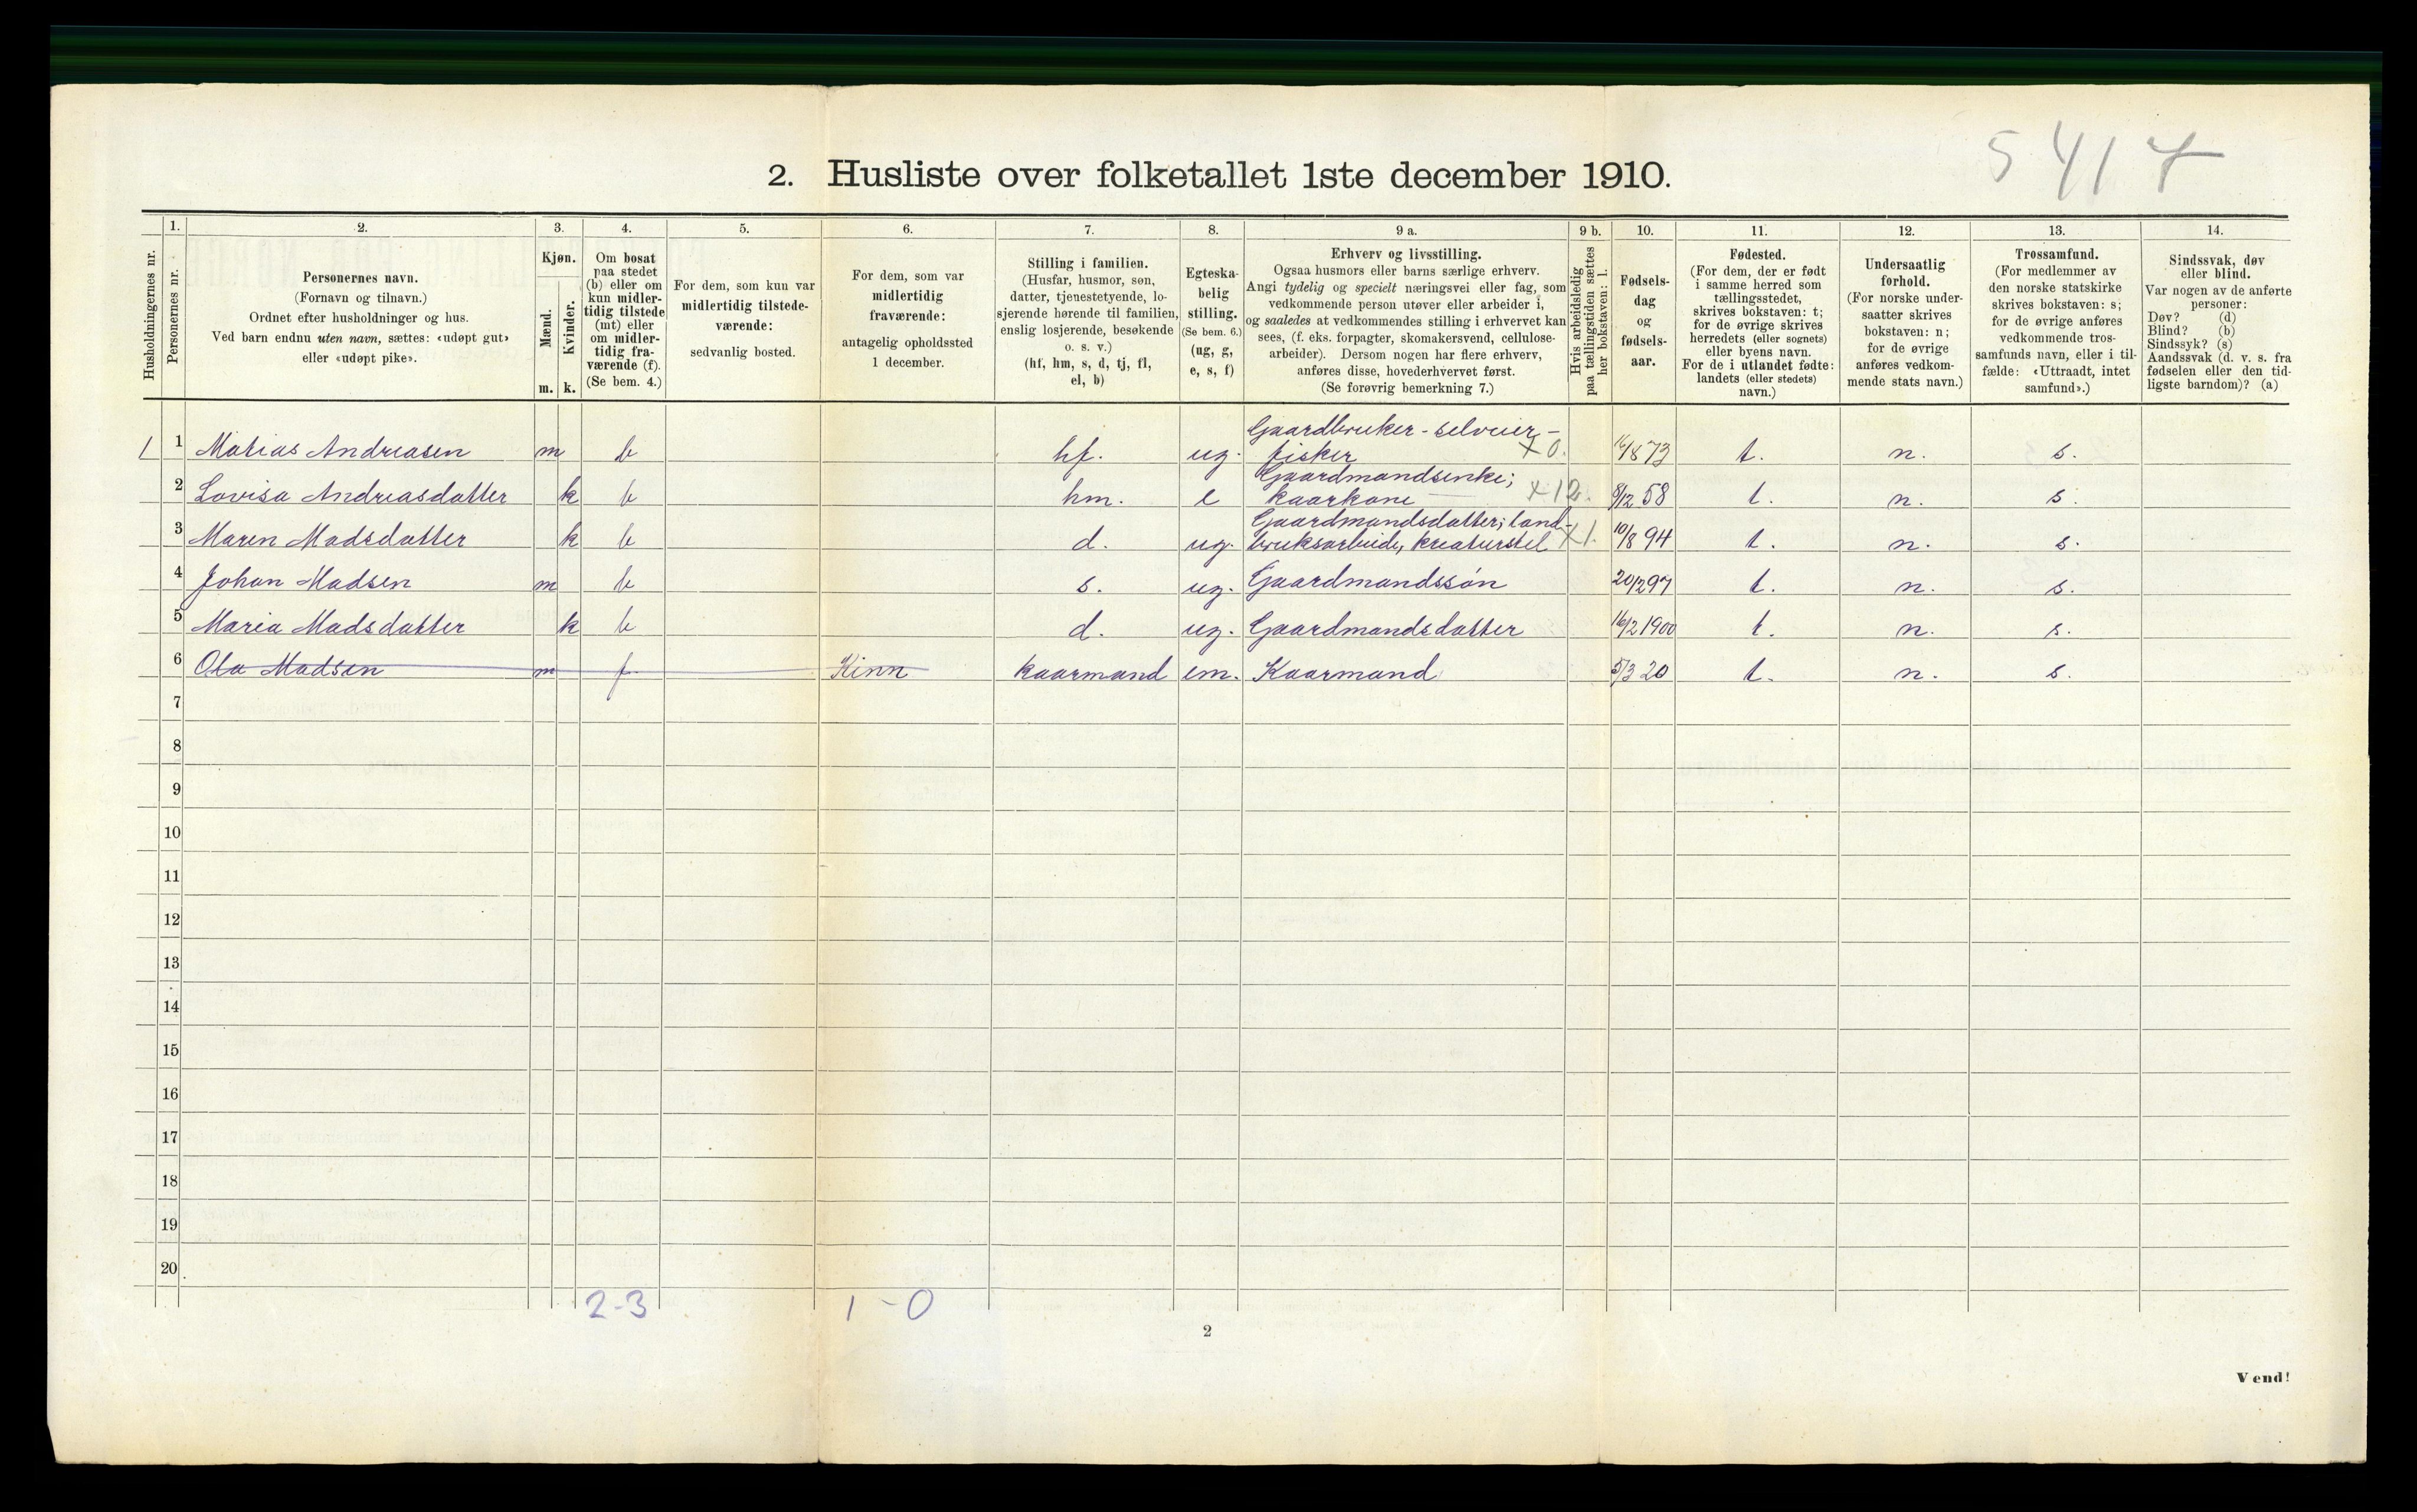 5417
2. Husliste over folketallet 1ste december 1910.
1. 2. 3. 4. 5. 6. 7. 8. 9 a. 9 b. 10. 11. 12. 13. 14.
Husholdningernes nr.
Personernes nr.
Personernes navn.
(Fornavn og tilnavn.)
Ordnet efter husholdninger og hus.
Ved barn endnu uten navn, sættes: «udøpt gut»
eller «udøpt pike».
Kjøn.
Mænd.
Kvinder.
m. k.
Om bosat
paa stedet
(b) eller om
kun midler-
tidig tilstede
(mt) eller
om midler-
tidig fra-
værende (f).
(Se bem. 4.)
For dem, som kun var
midlertidig tilstede-
værende:
sedvanlig bosted.
For dem, som var
midlertidig
fraværende:
antagelig opholdssted
1 december.
Stilling i familien.
(Husfar, husmor, søn,
datter, tjenestetyende, lo-
sjerende hørende til familien,
enslig losjerende, besøkende
o. s. v.)
(hf, hm, s, d, tj, fl,
el, b)
Egteska-
belig
stilling.
(Se bem. 6.)
(ug, g,
e, s, f)
Erhverv og livsstilling.
Ogsaa husmors eller barns særlige erhverv.
Angi tydelig og specielt næringsvei eller fag, som
vedkommende person utøver eller arbeider i,
og saaledes at vedkommendes stilling i erhvervet kan
sees, (f. eks. forpagter, skomakersvend, cellulose-
arbeider). Dersom nogen har flere erhverv,
anføres disse, hovederhvervet først.
(Se forøvrig bemerkning 7.)
Hvis arbeidsledig
paa tællingstiden sættes
her bokstaven: l.
Fødsels-
dag
og
fødsels-
aar.
Fødested.
(For dem, der er født
i samme herred som
tællingsstedet,
skrives bokstaven: t;
for de øvrige skrives
herredets (eller sognets)
eller byens navn.
For de i utlandet fødte:
landets (eller stedets)
navn.)
Undersaatlig
forhold.
(For norske under-
saatter skrives
bokstaven: n;
for de øvrige
anføres vedkom-
mende stats navn.)
Trossamfund.
(For medlemmer av
den norske statskirke
skrives bokstaven: s;
for de øvrige anføres
vedkommende tros-
samfunds navn, eller i til-
fælde: «Uttraadt, intet
samfund».)
Sindssvak, døv
eller blind.
Var nogen av de anførte
personer:
Døv? (d)
Blind? (b)
Sindssyk? (s)
Aandssvak (d. v. s. fra
fødselen eller den tid-
ligste barndom)? (a)
Gaardbruker - selveier -
1 1 Matias Andreasen m b hf. ug. fisker x 0. 16/8 73 t. n. s.
Gaardmandsenke;
2 Lovisa Andreasdatter k b hm. e kaarkone x 12. 8/12 58 t. n. s.
Gaardmandsdatter; land-
3 Maren Madsdatter k b d. ug. bruksarbeide, kreaturstel x 1. 10/8 94 t. n. s.
4 Johan Madsen m b s. ug. Gaardmandssøn 20/2 97 t. n. s.
5 Maria Madsdatter k b d. ug. Gaardmandsdatter 16/2 1900 t. n. s.
6 Ola Madsen m f Kinn kaarmand em. Kaarmand 5/3 20 t. n. s.
7
8
9
10
11
12
13
14
15
16
17
18
19
20
2-3 1-0
2
Vend!